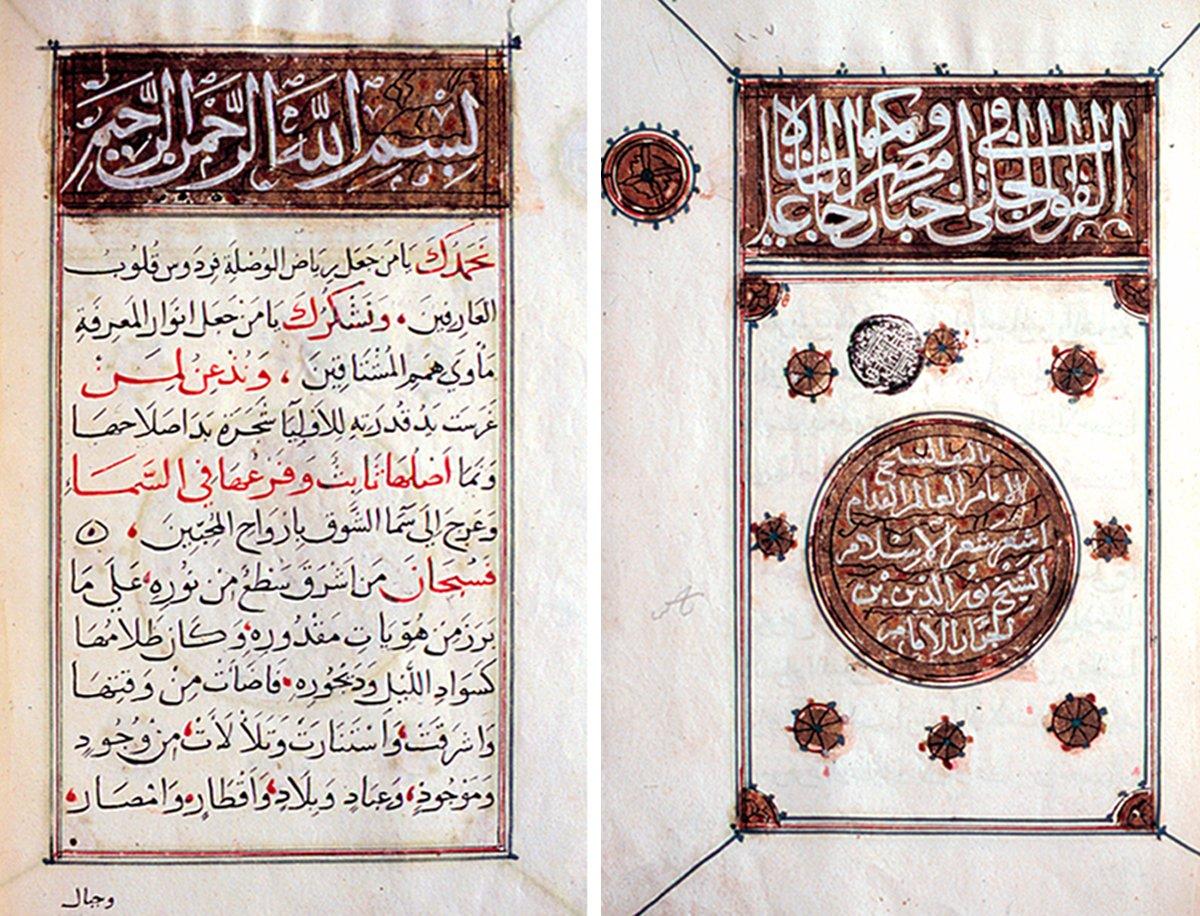 القول
اخبار مصر
الشيخ
الامام العالم العلام
الاسلام
الشيخ نور الدين بن
بسم الله الرحمن الرحيم
نحمدك يا من جعل رياض الوصلة فردوس قلوب
العارفين، ونشكرك يا من جعل انوار المعرفة
مأوي همم المشتاقين، ونذعن لمن
غرست يد قدرته للاوليا شجرة بدا صلاحها
ونما اصلها ثابت وفرعها في السماء
وعرج الي سما الشوق بارواح المحبين،
فسبحان من اشرق سطع من نوره، علي ما
برز من هويات مقدوره، وكان ظلامها
كسواد الليل وديجوره، فاضأت من وقتها
واشرقت، واستنارت وتلألأت، من وجود
وموجود، وعباد وبلاد، واقطار، وامصار،
وجبال